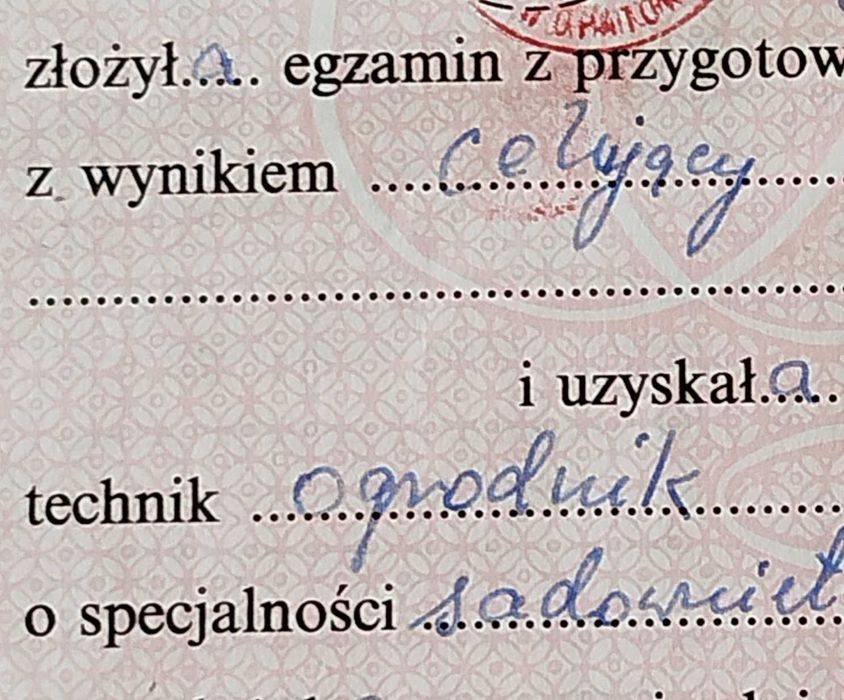 złożył..a... egzamin z przygotow
z wynikiem ....celujący....
....................
i uzyskał..a...
technik ...ogrodnik...
o specjalności ..sadownict